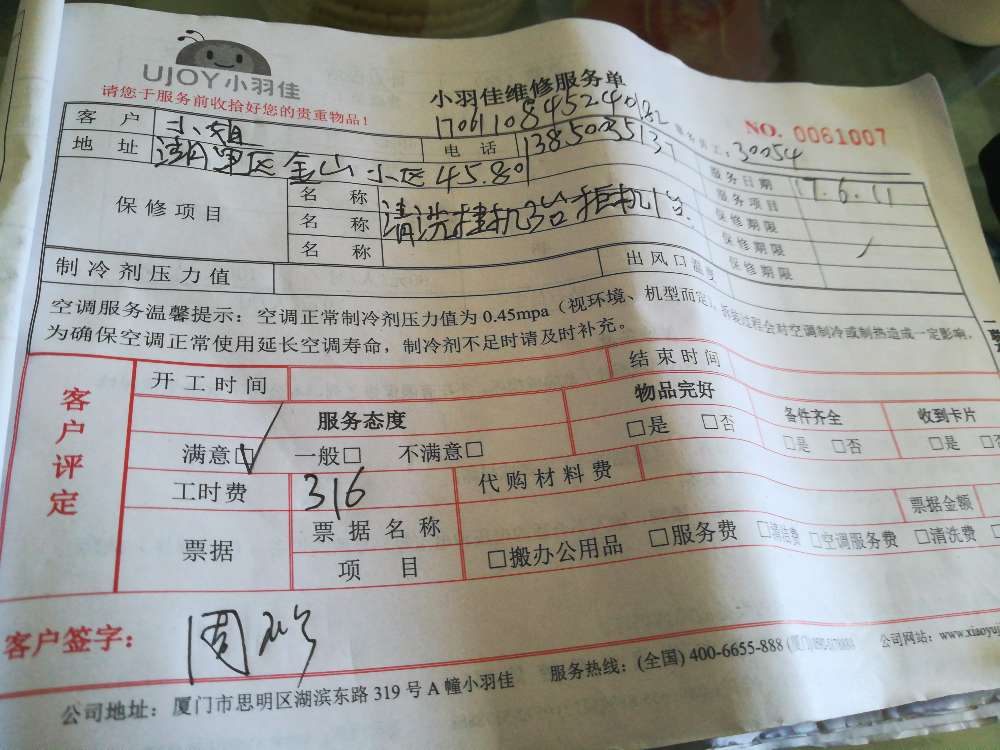 UJOY小羽佳
小羽佳维修服务单
请您于服务前收拾好您的贵重物品!
NO. 0061007
30054
客户 小姐 电话
地址 金山小区45.801 服务日期 17.6.11
保修项目 名称 清洗挂机3台柜机1台 服务项目
名称 保修期限
名称 保修期限
保修期限
制冷剂压力值 出风口温度
空调服务温馨提示:空调正常制冷剂压力值为 0.45mpa(视环境、机型而定),拆装过程会对空调制冷或制热造成一定影响,
为确保空调正常使用延长空调寿命,制冷剂不足时请及时补充。
客户评定
开工时间 结束时间
服务态度 物品完好 备件齐全 收到卡片
满意□ 一般□ 不满意□ □是 □否 □是 □否 □是 □否
工时费 316 代购材料费
票据 票据名称 票据金额
项目 □搬办公用品 □服务费 □清洁费 □空调服务费 □清洗费
客户签字: 周
公司地址:厦门市思明区湖滨东路 319 号 A 幢小羽佳 服务热线:(全国) 400-6655-888 公司网站:www.xiaoyuj